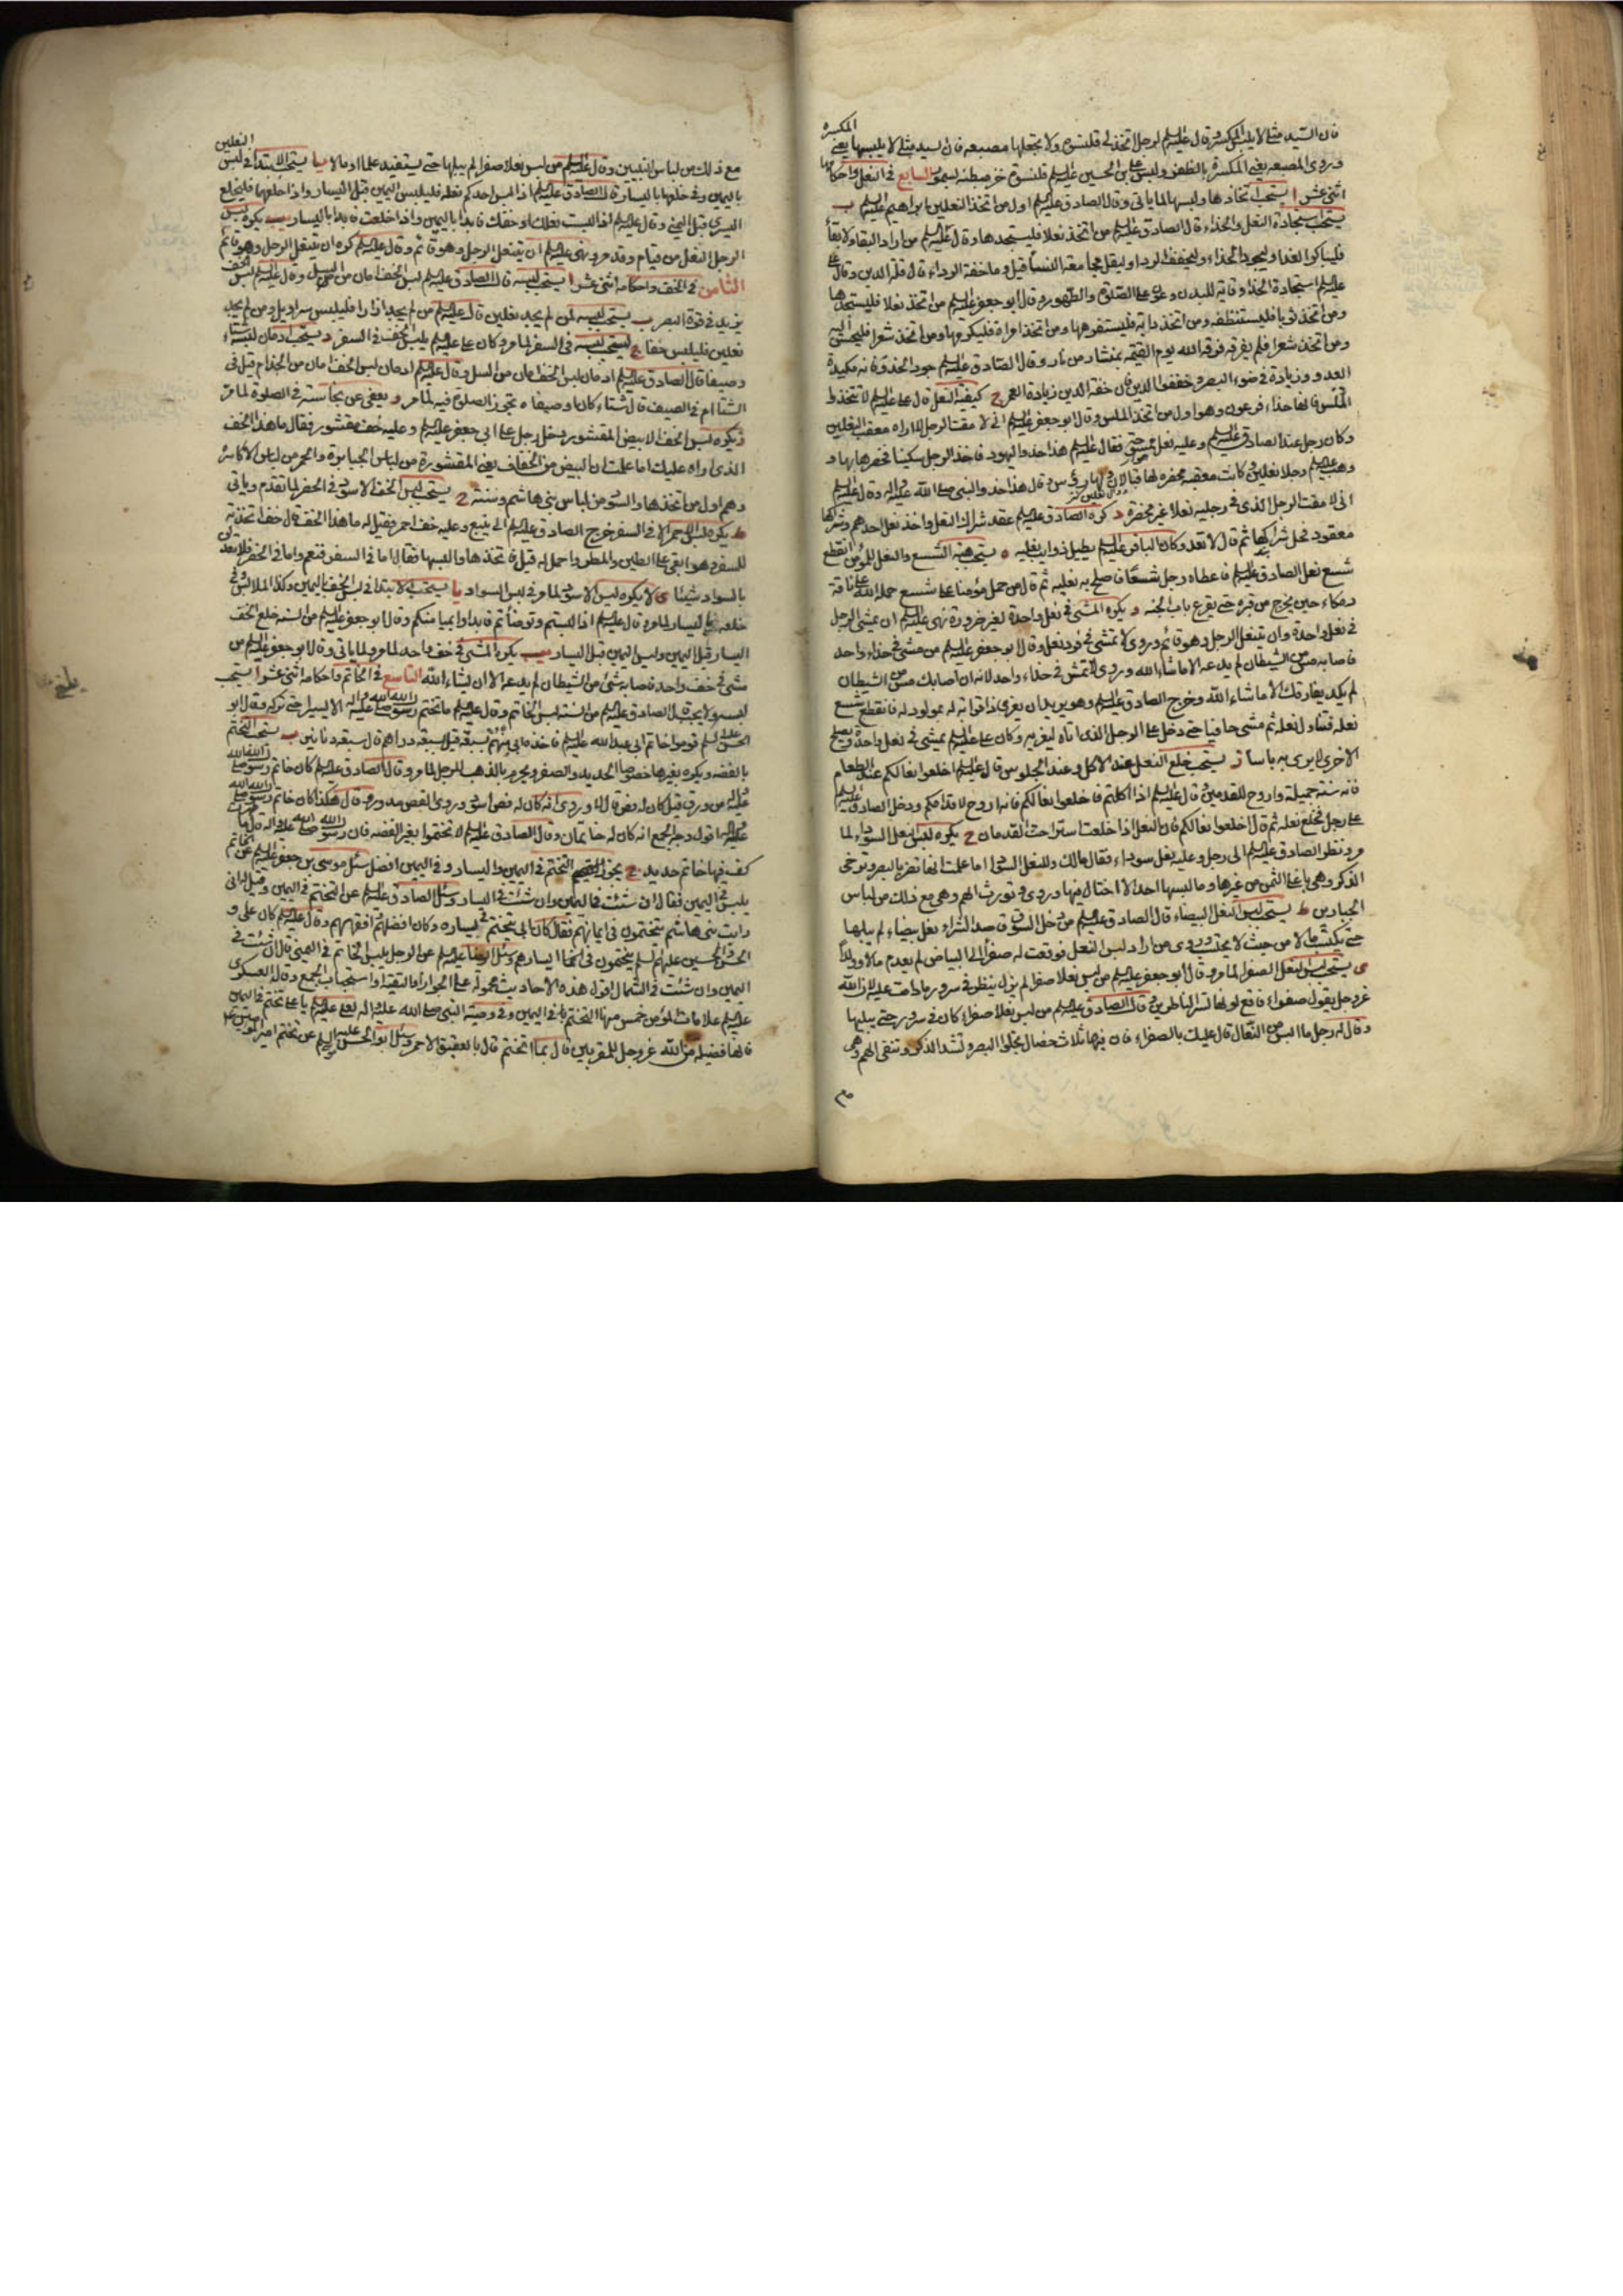 فان السيد مثلي لا يلبس المكسر وقال عليه السلم لرجل اتخذ لي قلنسوة ولا تجعلها مصبعة فان السيد مثلي لا يلبسها يعني المكسرة
وروي المصبعة يعني المكسرة بالظفر ولبس علي بن الحسين عليه السلم قلنسوة خز مبطنة بسمور السابع في النعل واحكامها
اثنى عشر ا يستحب اتخاذها ولبسها لما ياتي وقال الصادق عليه السلم اول من اتخذ النعلين ابراهيم عليه السلم ب
يستحب استجادة النعل والحذاء قال الصادق عليه السلم من اتخذ نعلا فليستجدها وقال عليه السلم من اراد البقاء ولا بقاء
فليباكر الغداء وليجود الحذاء وليخفف الرداء وليقل مجامعة النساء قيل وما خفة الرداء قال قلة الدين وقال علي
عليه السلم استجادة الحذاء وقاية للبدن وعون على الصلوة والطهور وقال ابو جعفر عليه السلم من اتخذ نعلا فليستجدها
ومن اتخذ ثوبا فليستنظفه ومن اتخذ دابة فليستفرهها ومن اتخذ امراة فليكرمها ومن اتخذ شعرا فليحسن اليه
ومن اتخذ شعرا فلم يفرقه فرقه الله يوم القيمة بمنشار من نار وقال الصادق عليه السلم جودوا الحذو فانه مكيدة
العدو وزيادة في ضوء البصر وخففوا الدين فان خفة الدين زيادة العمر ج كيفية النعل قال علي عليه السلم لا تتخذوا
الملس فانها حذاء فرعون وهو اول من اتخذ الملس وقال ابو جعفر عليه السلم اني لا مقت الرجل لا اراه معقب النعلين
وكان رجل عند الصادق عليه السلم وعليه نعل فقال عليه السلم هذا حذو اليهود فاخذ الرجل سكينا فخصرها بها و
وهب عليه السلم رجلا نعلين وكانت معقبة مخصرة لها قبالان وقال هذا حذو النبي صلى الله عليه واله وقال عليه السلم
اني لا مقت الرجل الذي في رجليه نعلا غير مخصرة د كره الصادق عليه السلم عقد شراك النعل واخذ نعل احدهم وشراكها
معقود فحل شراكها ثم قال لا تعد وكان الباقر عليه السلم يطيل ذوائب نعليه ه يستحب هبة الشسع والنعل للمؤمن انقطع
شسع نعل الصادق عليه السلم فاعطاه رجل شسعا فاصلح به نعليه ثم قال من حمل مؤمنا على شسع حمله الله على ناقة
دمكاء حين يخرج من قبره حتى يقرع باب الجنة و يكره المشي في نعل واحدة لغير ضرورة نهى عليه السلم ان يمشي الرجل
في نعل واحدة وان يتنعل الرجل وهو قائم وروي لا تمشي في فرد نعل وقال ابو جعفر عليه السلم من مشى في حذاء واحد
فاصابه مس من الشيطان لم يدعه الا ما شاء الله وروي لا تمش في حذاء واحد لانه ان اصابك مس من الشيطان
لم يكد يفارقك الا ما شاء الله وخرج الصادق عليه السلم وهو يريد ان يعزي ذا قرابة له بمولود له فانقطع شسع
نعله فتناول نعله ثم مشى حافيا حتى دخل على الرجل الذي اتاه ليعزيه وكان علي عليه السلم يمشي في نعل واحدة ويصلح
الاخرى لا يرى به باسا ز يستحب خلع النعل عند الاكل وعند الجلوس قال عليه السلم اخلعوا نعالكم عند الطعام
فانه سنة جميلة واروح للقدمين وقال عليه السلم اذا اكلتم فاخلعوا نعالكم فانه اروح لاقدامكم ودخل الصادق عليه السلم
على رجل فخلع نعله ثم قال اخلعوا نعالكم فان النعل اذا خلعت استراحت القدمان ح يكره لبس النعل السوداء لما
مر ونظر الصادق عليه السلم الى رجل وعليه نعل سوداء فقال مالك وللنعل السوداء اما علمت انها تضر بالبصر وترخى
الذكر وهي باغلا الثمن من غيرها وما لبسها احد الا اختال فيها وروي وتورث الهم وهي مع ذلك من لباس
الجبارين ط يستحب لبس النعل البيضاء قال الصادق عليه السلم من دخل السوق قاصدا لشراء نعل بيضاء لم يبلها
حتى يكتسب مالا من حيث لا يحتسب وروي من اراد لبس النعل فوقعت له صفراء الى البياض لم يعدم مالا وولدا
ى يستحب لبس النعل الصفراء لما مر وقال ابو جعفر عليه السلم من لبس نعلا صفراء لم يزل ينظر في سرور ما دامت عليه لان الله
عز وجل يقول صفراء فاقع لونها تسر الناظرين وقال الصادق عليه السلم من لبس نعلا صفراء كان في سرور حتى يبليها
وقال له رجل ما البس من النعال قال عليك بالصفراء فان فيها ثلاث خصال تجلوا البصر وتشد الذكر وتنفى الهم وهي
مع ذلك من لباس النبيين وقال عليه السلم من لبس نعلا صفراء لم يبلها حتى يستفيد علما او مالا يا يستحب الابتداء في لبس النعلين
باليمين وفي خلعها باليسار قال الصادق عليه السلم اذا لبس احدكم نعله فليلبس اليمين قبل اليسار واذا خلعها فليخلع
اليسرى قبل اليمنى وقال عليه السلم اذا لبست نعلك او خفك فابدا باليمين واذا خلعت فابدا باليسار يب يكره لبس
الرجل النعل من قيام وقد مر ونهى عليه السلم ان يتنعل الرجل وهو قائم وقال عليه السلم كره ان يتنعل الرجل وهو قائم
الثامن في الخف واحكامه اثنى عشر ا يستحب لبسه قال الصادق عليه السلم لبس الخف امان من السل وقال عليه السلم لبس الخف
يزيد في قوة البصر ب يستحب لبسه لمن لم يجد نعلين قال عليه السلم من لم يجد ازارا فليلبس سراويل ومن لم يجد
نعلين فليلبس خفا ج يستحب لبسه في السفر لما مر وكان علي عليه السلم يلبس الخف في السفر د يستحب ادمان لبسه شتاء
وصيفا قال الصادق عليه السلم ادمان لبس الخف امان من السل وقال عليه السلم ادمان لبس الخف امان من الجذام قيل في
الشتاء ام في الصيف قال شتاء كان او صيفا ه تجوز الصلوة فيه لما مر و يعفى عن نجاسته في الصلوة لما مر
ز يكره لبس الخف الابيض المقشور دخل رجل على ابي جعفر عليه السلم وعليه خف مقشور فقال ما هذا الخف
الذي اراه عليك اما علمت ان البيض من الخفاف يعني المقشورة من لباس الجبابرة والحمر من لباس الاكاسرة
وهم اول من اتخذها والسود من لباس بني هاشم وسنة ح يستحب لبس الخف الاسود في الحضر لما تقدم وياتي
ط يكره لبس الاحمر الا في السفر خرج الصادق عليه السلم الى ينبع وعليه خف احمر فقيل له ما هذا الخف قال خف اتخذته
للسفر وهو ابقى على الطين والمطر واحمل له قيل فاتخذها والبسها فقال اما في السفر فنعم واما في الحضر فلا تعدلن
بالسواد شيئا ى لا يكره لبس الاسود لما مر في لبس السواد يا يستحب الابتداء في لبس الخف باليمين وكذا الملابس وفي
خلعه باليسار لما مر وقال عليه السلم اذا لبستم وتوضأتم فابداوا بميامنكم وقال ابو جعفر عليه السلم من السنة خلع الخف
اليسار قبل اليمين ولبس اليمين قبل اليسار يب يكره المشي في خف واحد لما مر ولما ياتي وقال ابو جعفر عليه السلم من
مشى في خف واحد فاصابه شئ من الشيطان لم يدعه الا ان يشاء الله التاسع في الخاتم واحكامه اثنى عشر ا يستحب
لبسه ولا يجب قال الصادق عليه السلم من السنة لبس الخاتم وقال عليه السلم ما تختم رسول الله صلى الله عليه واله الا يسيرا حتى تركه وقال ابو
الحسن عليه السلم قوموا خاتم ابي عبد الله عليه السلم فاخذه ابي منهم بسبعة قيل سبعة دراهم قال سبعة دنانير ب يستحب التختم
بالفضة ويكره بغيرها خصوصا الحديد والصفر ويحرم بالذهب للرجل لما مر وقال الصادق عليه السلم كان خاتم رسول الله صلى الله
عليه واله من ورق قيل كان له فص قال لا وروي انه كان له فص اسود وروي الفص مدور وقال هكذا كان خاتم رسول الله صلى الله
عليه واله اقول وجه الجمع انه كان له خاتمان وقال الصادق عليه السلم لا تختموا بغير الفضة فان رسول الله صلى الله عليه واله قال ما
طهرت كف فيها خاتم حديد ج يجوز التختم في اليمين واليسار وفي اليمين افضل سئل موسى بن جعفر عليه السلم عن الخاتم
يلبس في اليمين فقال ان شئت في اليمين وان شئت في اليسار وسئل الصادق عليه السلم عن التختم في اليمين وقيل اني
رايت بني هاشم يتختمون في ايمانهم فقال كان ابي يتختم في يساره وكان افضلهم وافقههم وقال عليه السلم كان علي و
الحسن والحسين عليهم السلم يتختمون في ايسارهم وسئل الرضا عليه السلم عن الرجل يلبس الخاتم في اليمين قال ان شئت في
اليمين وان شئت في الشمال اقول هذه الاحاديث محمولة على الجواز او التقية او استحباب الجمع وقال العسكري
عليه السلم علامات المؤمن خمس منها التختم في اليمين وفي وصية النبي صلى الله عليه واله لعلي عليه السلم يا علي تختم في اليمين
فانها فضيلة من الله عز وجل للمقربين قال بما اتختم قال بالعقيق الاحمر وسئل ابو الحسن عليه السلم عن تختم امير المؤمنين